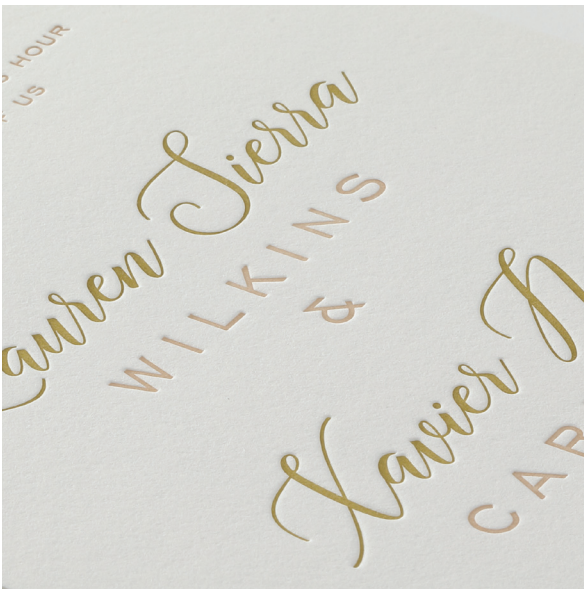 HOUR
US
Lauren Sierra
WILKINS
&
Xavier